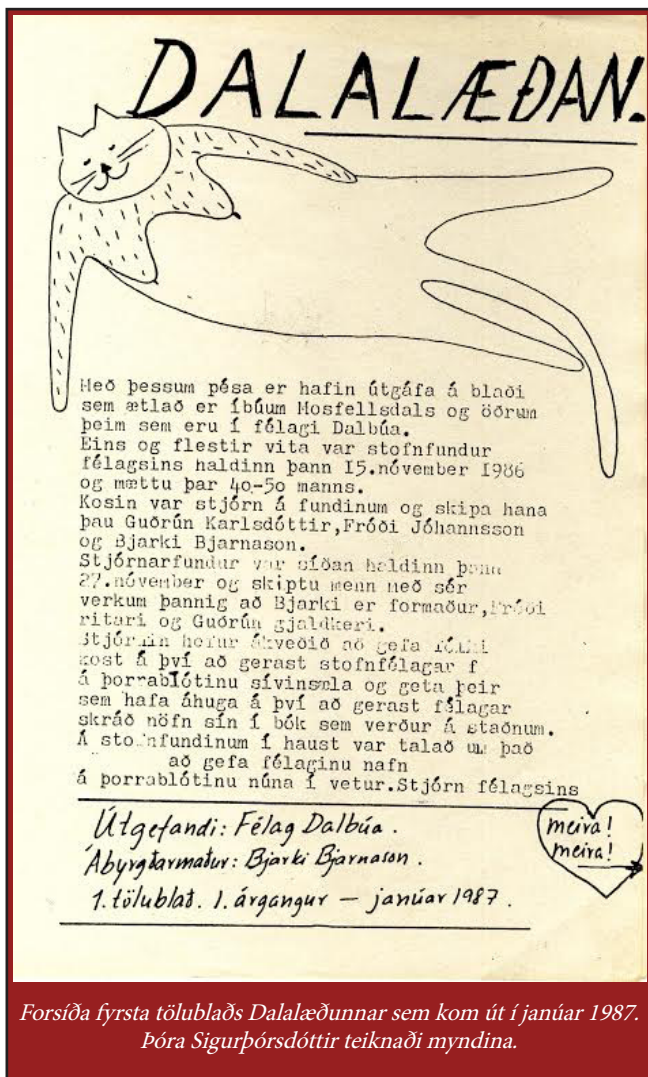 DALALÆÐAN.
Með þessum pésa er hafin útgáfa á blaði
sem ætlað er íbúum Mosfellsdals og öðrum
þeim sem eru í félagi Dalbúa.
Eins og flestir vita var stofnfundur
félagsins haldinn þann 15.nóvember 1986
og mættu þar 40-50 manns.
Kosin var stjórn á fundinum og skipa hana
þau Guðrún Karlsdóttir,Fróði Jóhannsson
og Bjarki Bjarnason.
Stjórnarfundur var síðan haldinn þann
27.nóvember og skiptu menn með sér
verkum þannig að Bjarki er formaður,Fróði
ritari og Guðrún gjaldkeri.
Stjórnin hefur ákveðið að gefa fólki
kost á því að gerast stofnfélagar f
á þorrablótinu sívinsæla og geta þeir
sem hafa áhuga á því að gerast félagar
skráð nöfn sín í bók sem verður á staðnum.
Á stofnfundinum í haust var talað um það
að gefa félaginu nafn
á þorrablótinu núna í vetur.Stjórn félagsins
meira!
meira!
Útgefandi: Félag Dalbúa.
Ábyrgðarmaður: Bjarki Bjarnason.
1. tölublað. 1. árgangur — janúar 1987.
Forsíða fyrsta tölublaðs Dalalæðunnar sem kom út í janúar 1987.
Þóra Sigurþórsdóttir teiknaði myndina.